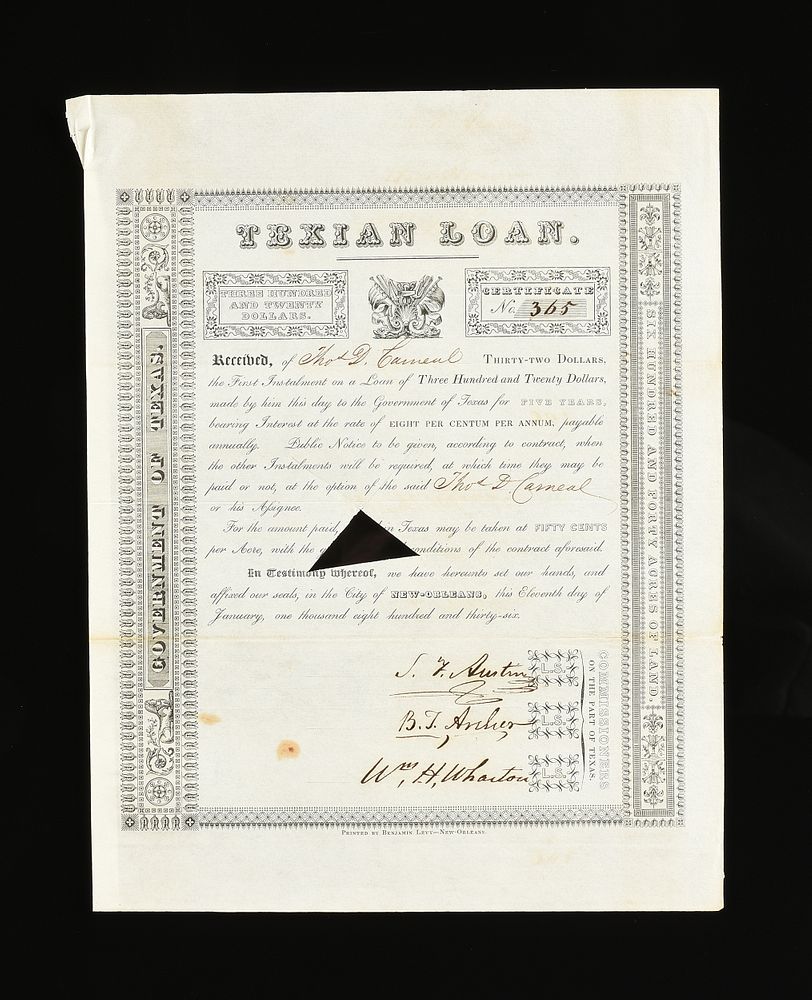 TEXIAN LOAN.
THREE HUNDRED
AND TWENTY
DOLLARS.
CERTIFICATE
No. 365
Received, of Thos. D. Carneal THIRTY-TWO DOLLARS,
the First Instalment on a Loan of Three Hundred and Twenty Dollars,
made by him this day to the Government of Texas for FIVE YEARS,
bearing Interest at the rate of EIGHT PER CENTUM PER ANNUM, payable
annually. Public Notice to be given, according to contract, when
the other Instalments will be required, at which time they may be
paid or not, at the option of the said Thos. D Carneal
or his Assignee.
For the amount paid, in Texas may be taken at FIFTY CENTS
per Acre, with the conditions of the contract aforesaid.
In Testimony Whereof, we have hereunto set our hands, and
affixed our seals, in the City of NEW-ORLEANS, this Eleventh day of
January, one thousand eight hundred and thirty-six.
S. F. Austin L.S.
B. T. Archer L.S.
Wm. H. Wharton L.S.
COMMISSIONERS
ON THE PART OF TEXAS.
GOVERNMENT OF TEXAS.
SIX HUNDRED AND FORTY ACRES OF LAND.
PRINTED BY BENJAMIN LEVY—NEW-ORLEANS.